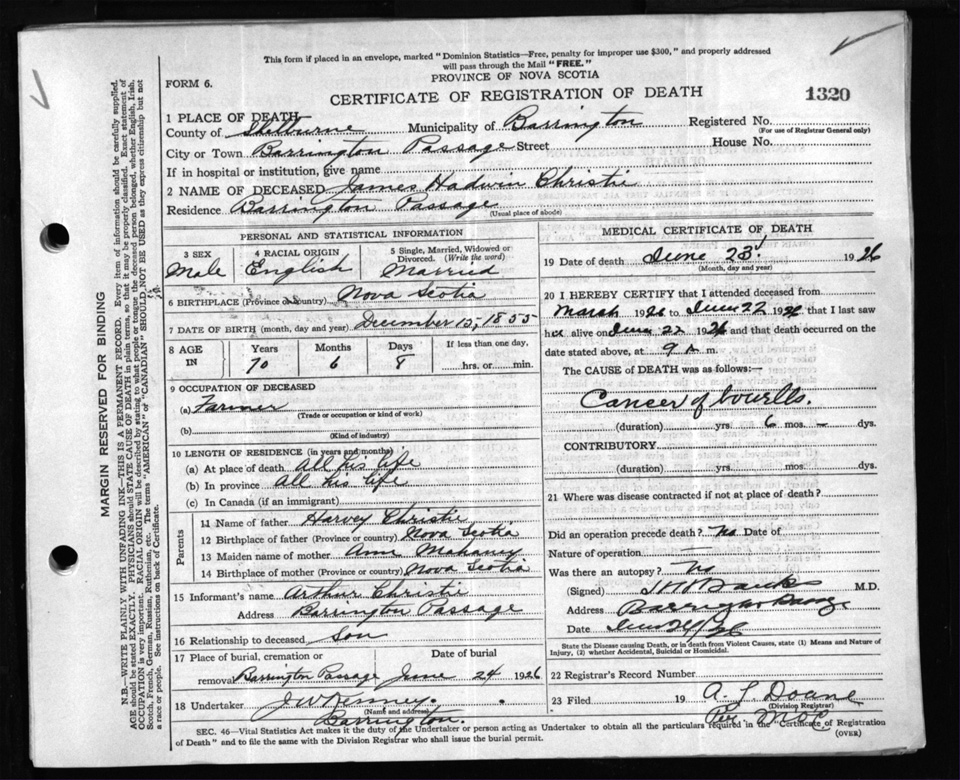 This form if placed in an envelope, marked "Dominion Statistics—Free, penalty for improper use $300," and properly addressed
will pass through the Mail "FREE."
PROVINCE OF NOVA SCOTIA
FORM 6.
CERTIFICATE OF REGISTRATION OF DEATH
1320
1 PLACE OF DEATH
County of Shelburne Municipality of Barrington Registered No.
(For use of Registrar General only)
City or Town Barrington Passage Street House No.
If in hospital or institution, give name
2 NAME OF DECEASED James Hadwin Christie
Residence Barrington Passage
(Usual place of abode)
PERSONAL AND STATISTICAL INFORMATION
3 SEX 4 RACIAL ORIGIN 5 Single, Married, Widowed or
Divorced. (Write the word)
Male English Married
6 BIRTHPLACE (Province or country) Nova Scotia
7 DATE OF BIRTH (month, day and year) December 15, 1855
8 AGE IN Years Months Days If less than one day,
70 6 8 hrs. or min.
9 OCCUPATION OF DECEASED
(a) Farmer
(Trade or occupation or kind of work)
(b)
(Kind of industry)
10 LENGTH OF RESIDENCE (in years and months)
(a) At place of death All his life
(b) In province All his life
(c) In Canada (if an immigrant)
Parents
11 Name of father Harvey Christie
12 Birthplace of father (Province or country) Nova Scotia
13 Maiden name of mother Ann Mahaney
14 Birthplace of mother (Province or country) Nova Scotia
15 Informant's name Arthur Christie
Address Barrington Passage
16 Relationship to deceased Son
17 Place of burial, cremation or Date of burial
removal Barrington Passage June 24 1926
18 Undertaker J W
(Name and address)
Barrington.
MEDICAL CERTIFICATE OF DEATH
19 Date of death June 23 1926
(Month, day and year)
20 I HEREBY CERTIFY that I attended deceased from
March 1926 to June 22 1926 that I last saw
h alive on June 22 1926 and that death occurred on the
date stated above, at 9 A m.
The CAUSE of DEATH was as follows:—
Cancer of bowells.
(duration) yrs. 6 mos. – dys.
CONTRIBUTORY
(duration) yrs. mos. dys.
21 Where was disease contracted if not at place of death?
Did an operation precede death? No Date of
Nature of operation —
Was there an autopsy? No
(Signed) Banks M.D.
Address Barrington Passage
Date June 24/26
State the Disease causing Death, or in death from Violent Causes, state (1) Means and Nature of
Injury, (2) whether Accidental, Suicidal or Homicidal.
22 Registrar's Record Number
23 Filed 19 A. L Doane
(Division Registrar)
Per
SEC. 46—Vital Statistics Act makes it the duty of the Undertaker or person acting as Undertaker to obtain all the particulars required in the "Certificate of Registration
of Death" and to file the same with the Division Registrar who shall issue the burial permit.
(OVER)
MARGIN RESERVED FOR BINDING
N.B.—WRITE PLAINLY WITH UNFADING INK—THIS IS A PERMANENT RECORD. Every item of information should be carefully supplied.
AGE should be stated EXACTLY. PHYSICIANS should STATE CAUSE OF DEATH in plain terms, so that it may be properly classified. Exact statement of
OCCUPATION is very important. RACIAL ORIGIN will be described by stating to what people or tongue the deceased person belonged, whether English, Irish,
Scotch, French, German, Russian, Ruthenian, etc. The terms "AMERICAN" or "CANADIAN" SHOULD NOT BE USED as they express citizenship but not
a race or people. See instructions on back of Certificate.